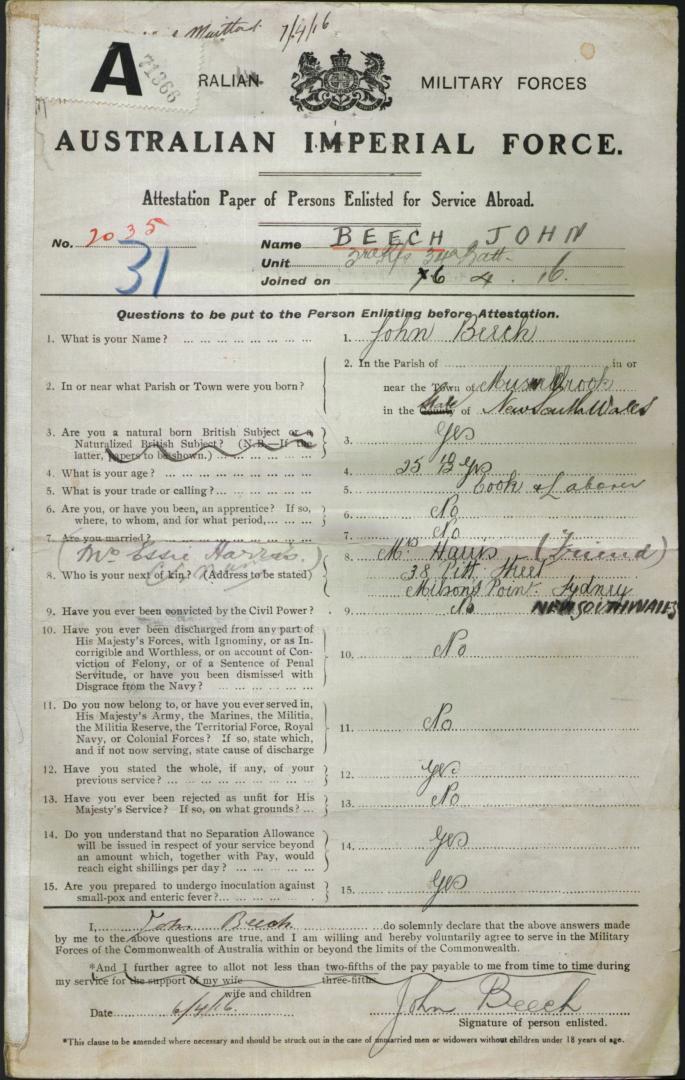 7/4/16
A
71366
RALIAN MILITARY FORCES
AUSTRALIAN IMPERIAL FORCE.
Attestation Paper of Persons Enlisted for Service Abroad.
No. 2035
31
Name BEECH JOHN
Unit
Joined on 6 4 . 16.
Questions to be put to the Person Enlisting before Attestation.
1. What is your Name? 1. John Beech
2. In or near what Parish or Town were you born? 2. In the Parish of in or
near the Town of
in the State of New South Wales
3. Are you a natural born British Subject or a
Naturalized British Subject? (N.B.—If the
latter, papers to be shown.) 3. Yes
4. What is your age? 4. 25
5. What is your trade or calling? 5. Cook & Laborer
6. Are you, or have you been, an apprentice? If so,
where, to whom, and for what period, 6. No
7. Are you married? 7. No
(Mrs Essie Harris.)
8. Who is your next of kin? (Address to be stated) 8. Mrs Harris (Friend)
38 Pitt Street
Milsons Point. Sydney
NEW SOUTH WALES
9. Have you ever been convicted by the Civil Power? 9. No
10. Have you ever been discharged from any part of
His Majesty's Forces, with Ignominy, or as In-
corrigible and Worthless, or on account of Con-
viction of Felony, or of a Sentence of Penal
Servitude, or have you been dismissed with
Disgrace from the Navy? 10. No
11. Do you now belong to, or have you ever served in,
His Majesty's Army, the Marines, the Militia,
the Militia Reserve, the Territorial Force, Royal
Navy, or Colonial Forces? If so, state which,
and if not now serving, state cause of discharge 11. No
12. Have you stated the whole, if any, of your
previous service? 12. Yes
13. Have you ever been rejected as unfit for His
Majesty's Service? If so, on what grounds? 13. No
14. Do you understand that no Separation Allowance
will be issued in respect of your service beyond
an amount which, together with Pay, would
reach eight shillings per day? 14. Yes
15. Are you prepared to undergo inoculation against
small-pox and enteric fever? 15. Yes
I, John Beech do solemnly declare that the above answers made
by me to the above questions are true, and I am willing and hereby voluntarily agree to serve in the Military
Forces of the Commonwealth of Australia within or beyond the limits of the Commonwealth.
*And I further agree to allot not less than two-fifths of the pay payable to me from time to time during
my service for the support of my wife three-fifths
wife and children
Date 6/4/16. John Beech
Signature of person enlisted.
*This clause to be amended where necessary and should be struck out in the case of unmarried men or widowers without children under 18 years of age.